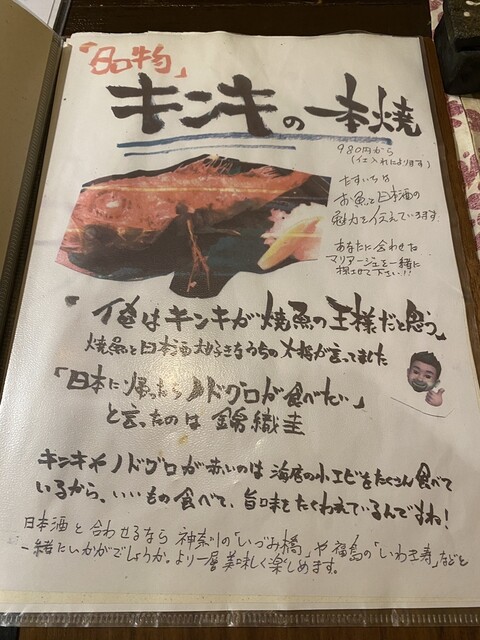 「名物」
キンキの一本焼
980円から
(仕入れによります)
お魚と日本酒の
魅力を伝えています
あなたに合わせた
マリアージュを一緒に
探させて下さい!!
「俺はキンキが焼魚の王様だと思う」
焼魚と日本酒大好きなうちの大将が言ってました
「日本に帰ったらノドグロが食べたい…」
と言ったのは 錦織圭
キンキやノドグロが赤いのは 海底の小エビをたくさん食べて
いるから、いいもの食べて、旨味をたくわえているんですね!
日本酒と合わせるなら 神奈川の「いづみ橋」や福島の「いわき寿」などと
一緒にいかがでしょうか。より一層美味しく楽しめます。